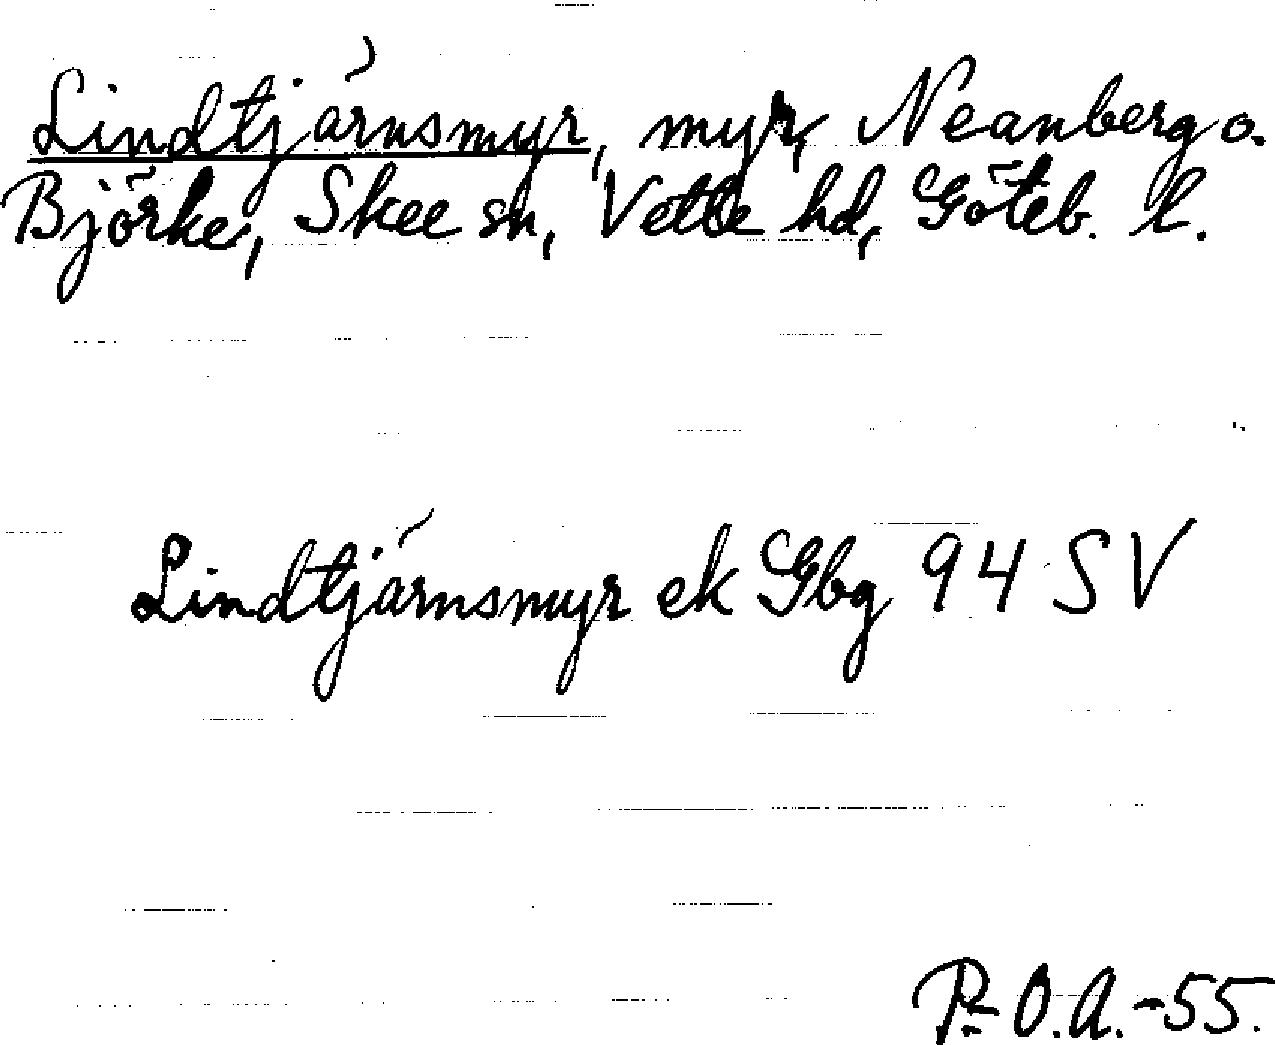 Lindtjärnsmyr, myr, Neanberg o.
Björke, Skee sn, Vette hd, Göteb. l.
Lindtjärnsmyr ek Gbg 94 SV
P. O.A.-55.